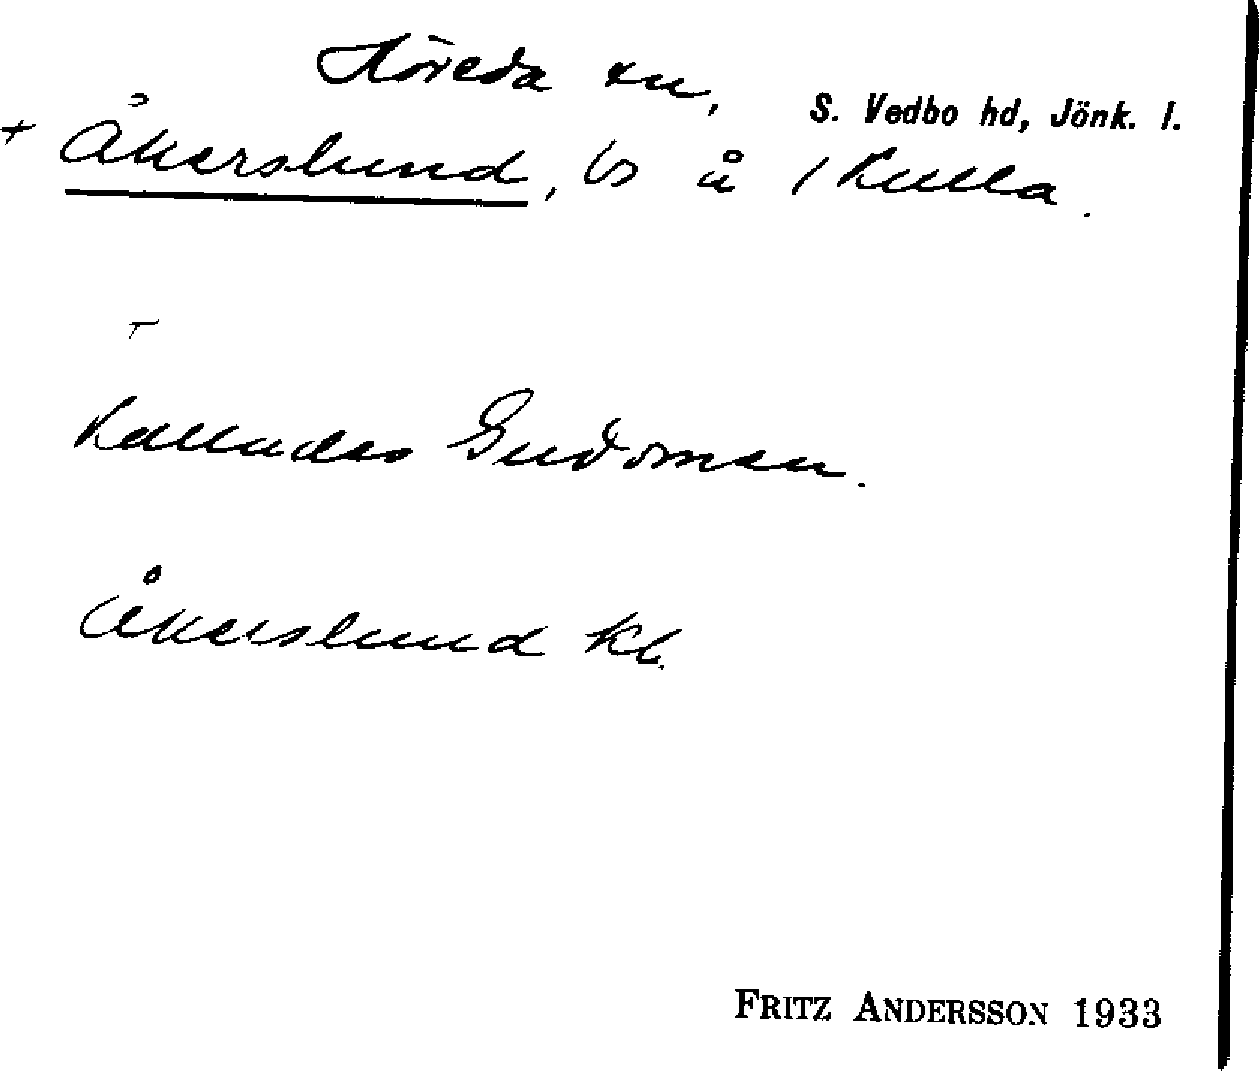 Höreda sn,
S. Vedbo hd, Jönk. l.
+ Åkerslund, ls å 1 Kulla.
Kallades Gudsmen.
Åkerslund kl.
FRITZ ANDERSSON 1933